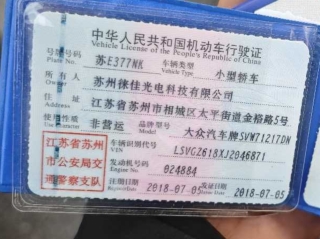 中华人民共和国机动车行驶证
Vehicle License of the People's Republic of China
号牌号码 苏E377NK 车辆类型 小型轿车
Plate No. Vehicle Type
所有人 苏州徕佳光电科技有限公司
Owner
住址 江苏省苏州市相城区太平街道金裕路5号
Address
使用性质 非营运 品牌型号 大众汽车牌SVW71217DN
Use Character Model
江苏省苏州市公安局交通警察支队
车辆识别代号 LSVGZ618XJ2046871
VIN
发动机号码 024884
Engine No.
注册日期 2018-07-05 发证日期 2018-07-05
Register Date Issue Date